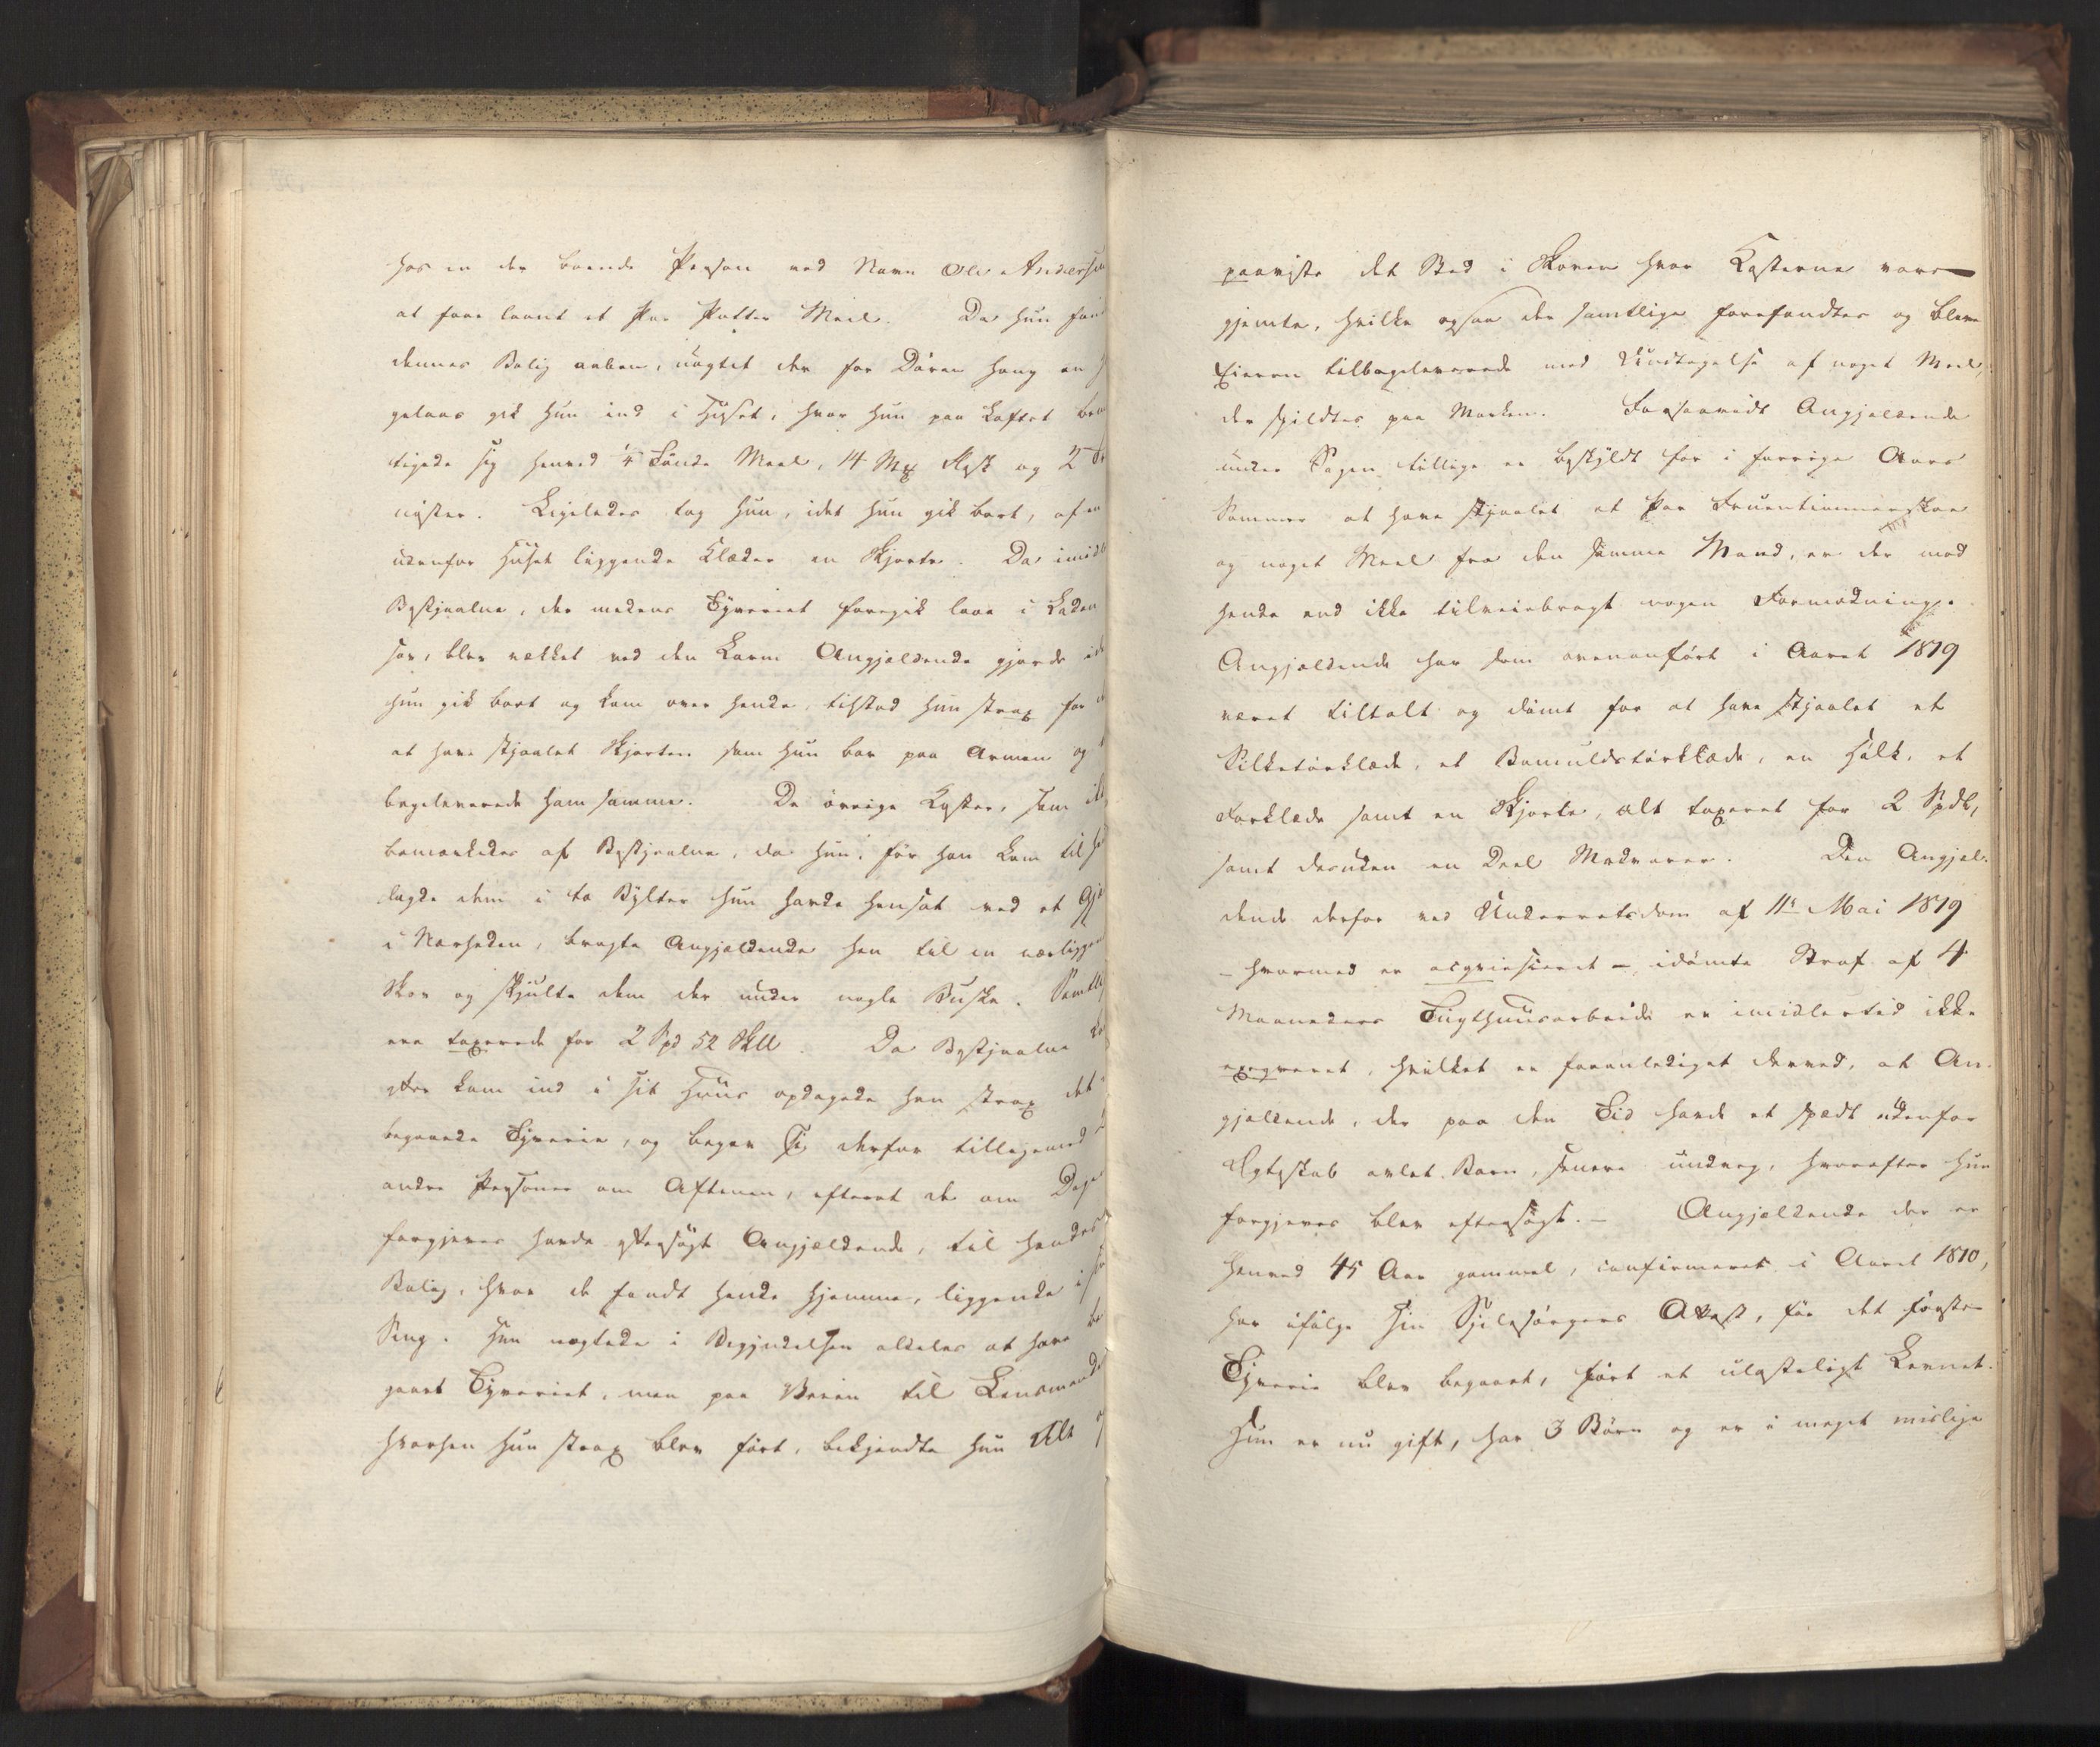 hos en der boende Person ved Navn Ole Andersen
at faae laant et Par Potter Meel. Da hun fandt
dennes Bolig aaben, uagtet der for Døren hang en
gelaas gik hun ind i Huset, hvor hun paa Loftet bem
tigede sig henved ¼ Tønde Meel, 14 Mk Flesk og 2
nister. Ligeledes tog hun, idet hun gik bort, af en
udenfor Huset liggende Klæder en Skjorte. Da imidl
Bestjaalne, der medens Tyveriet foregik laae i Laden
sov, blev vækket ved den Larm Angjældende gjorde id
hun gik bort og kom over hende, tilstod hun strax for
at have stjaalet Skjorten som hun bar paa Armen og
bageleverede ham samme. De øvrige Koster, som ikk
bemærkedes af Bestjaalne, da hun, før han kom til he
lagde dem i to Bylter hun havde hensat ved et Gje
i Nærheden, bragte Angjældende hen til en nærliggen
Skov og skjulte dem der under nogle Buske. Samtlig
ere taxerede for 2 Spd 52 Skll. Da Bestjaalne
efter kom ind i sit Huus opdagede han strax det
begaaede Tyverie, og begav sig derfor tilligemed 2
andre Personer om Aftenen, efterat de om Dage
forgjeves havde eftersøgt Angjældende, til hendes
Bolig, hvor de fandt hende hjemme, liggende i si
Seng. Hun negtede i Begyndelsen aldeles at have be
gaaet Tyveriet, men paa Veien til Lensmande
hvorhen hun strax blev ført, bekjendte hun Alt
paaviste det Sted i Skoven hvor Kosterne vare
gjemte, hvilke ogsaa der samtlige forefandtes og bleve
Eieren tilbageleverede med Undtagelse af noget Meel,
der spildtes paa Marken. Forsaavidt Angjældende
under Sagen tillige er beskyldt for i forrige Aars
Sommer at have stjaalet et Par Fruentimmerskoe
og noget Meel fra den samme Mand, er der mod
hende end ikke tilveiebragt nogen Formodning.
Angjældende har som ovenanført i Aaret 1819
været tiltalt og dømt for at have stjaalet et
Silketørklæde, et Bomuldstørklæde, en Hålk, et
Forklæde samt en Skjorte, alt taxeret for 2 Spdl,
samt desuden en Deel Madvarer. Den Angjæl-
dende derfor ved Underretsdom af 11te Mai 1819
– hvormed er acqviesceret – idømte Straf af 4
Maaneders Tugthuusarbeide er imidlertid ikke
exeqveret, hvilket er foranlediget derved, at An-
gjældende, der paa den Tid havde et spædt udenfor
Ægteskab avlet Barn, senere undveg, hvorefter hun
forgjeves blev eftersøgt. – Angjældende der er
henved 45 Aar gammel, confirmeret i Aaret 1810,
har ifølge sin Sjelesørgers Attest, før det første
Tyverie blev begaaet, ført et ulasteligt Levnet.
Hun er nu gift, har 3 Børn og er i meget mislige